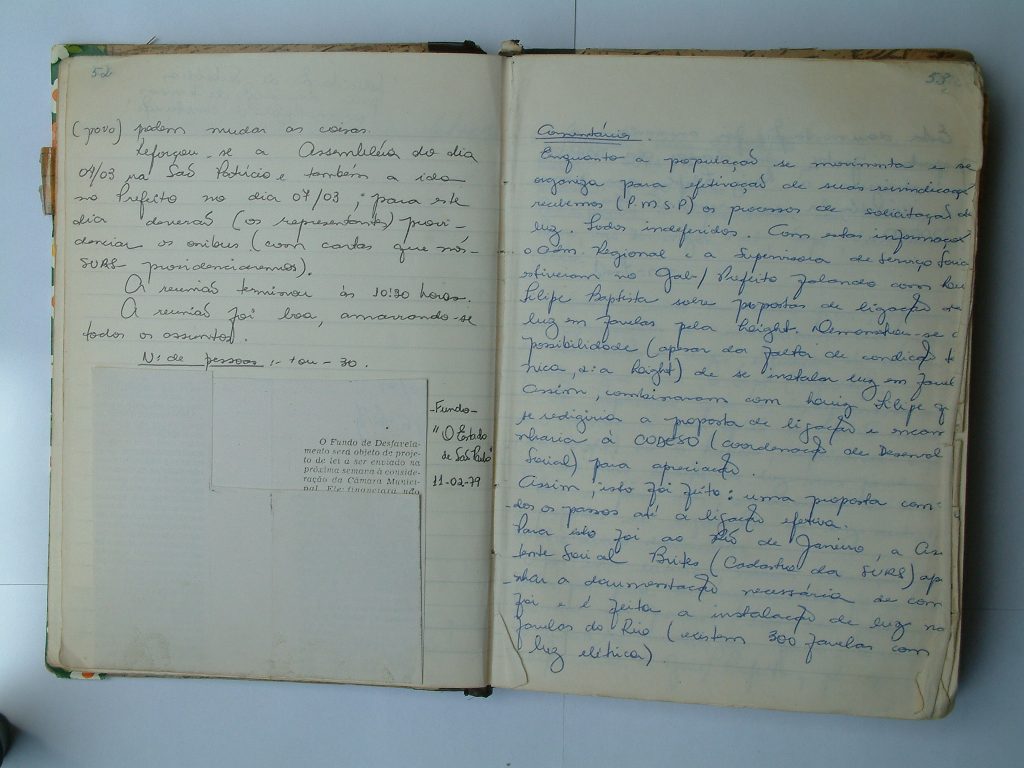 52
(povo) podem mudar as coisas.
Reforçou-se a Assembléia do dia
04/03 na São Patrício e também a ida
no Prefeito no dia 07/03; para este
dia deverão (os representantes) provi-
denciar os onibus (com cartas que nós-
SURS- providenciaremos).
A reunião terminou às 10:30 horas.
A reunião foi boa, amarrando-se
todos os assuntos.
Nº de pessoas :- + ou - 30.
O Fundo de Desfavela-
mento será objeto de proje-
to de lei a ser enviado na
próxima semana à conside-
ração da Câmara Munici-
pal. Ele financiará não
-Fundo-
"O Estado
de São Paulo"
11-02-79
53
Comentários
Enquanto a população se movimenta e se
organiza para efetivação de suas reivindicações
recebemos (P.M.S.P) os processos de solicitação de
luz. Todos indeferidos. Com estas informações
o Adm. Regional e a Supervisora de Serviço Social
estiveram no Gab./Prefeito falando com
Felipe Baptista sobre propostas de ligação
luz em favelas pela Light. Demonstrou-se
possibilidade (apesar da falta de condição
nica, a Light) de se instalar luz em
Assim, combinaram com Felipe
se redigiria a proposta de ligação e
nharia à CODESO (Coordenação de Desenvol
Social) para apreciação.
Assim, isto foi feito: uma proposta com
dos os passos até a ligação efetiva.
Para isto foi ao Rio de Janeiro, a As
tente Social Brites (Cadastro da SURS)
nhar a documentação necessária de como
foi e é feita a instalação de luz na
favelas do Rio (existem 300 favelas com
luz elétrica)